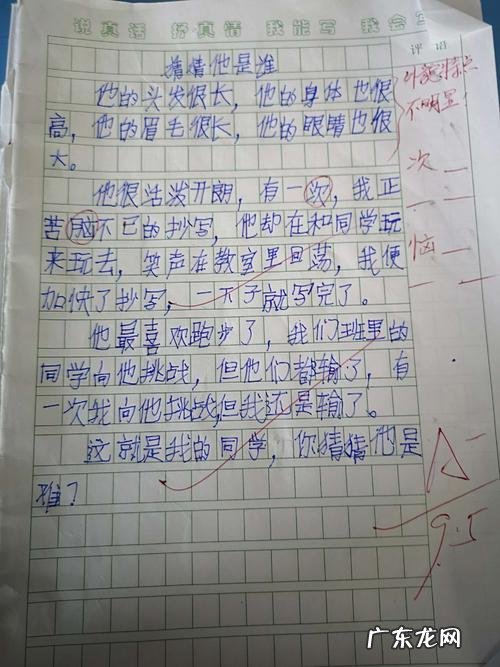 说真话 抒真情 我能写 我会写
评语
猜猜他是谁
他的头发很长，他的身体也很
高，他的眉毛很长，他的眼睛也很
大。
外貌特点
不明显！
他很活泼开朗，有一次，我正
次
苦恼不已的抄写，他却在和同学玩
来玩去，笑声在教室里回荡，我便
恼
加快了抄写，一下子就写完了。
他最喜欢跑步了，我们班里的
同学向他挑战，但他们都输了，有
一次我向他挑战，但我还是输了。
这就是我的同学，你猜猜他是
谁？
A-
9.5
广东龙网